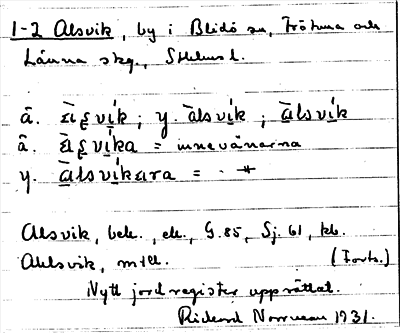 1-2 Alsvik, by i Blidö sn, Frötuna och
Länna skg., Sthlms l.
å. ; y. alsvik ; alsvik
å. = innevånarna
y. alsvikara = -"-
Alsvik, beb., ek., G.85, Sj. 61, kb.
Ahlsvik, mtl. (Forts.)
Nytt jordregister upprättat.
Rickard 1931.